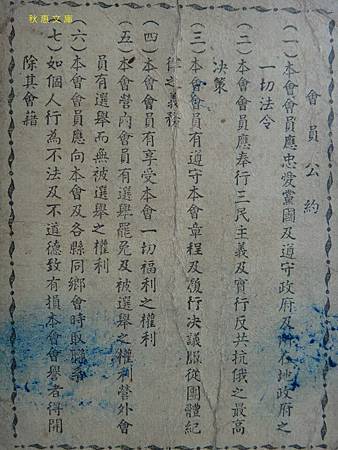 秋惠文庫
會員公約
(一)本會會員應忠愛黨國及遵守政府及所在地政府之
一切法令
(二)本會會員應奉行三民主義及實行反共抗俄之最高
決策
(三)本會會員有遵守本會章程及履行決議服從團體紀
律之義務
(四)本會會員有享受本會一切福利之權利
(五)本會營內會員有選舉罷免及被選舉之權利營外會
員有選舉而無被選舉之權利
(六)本會會員應向本會及各縣同鄉會時取聯系
(七)如個人行為不法及不道德致有損本會會譽者得開
除其會籍